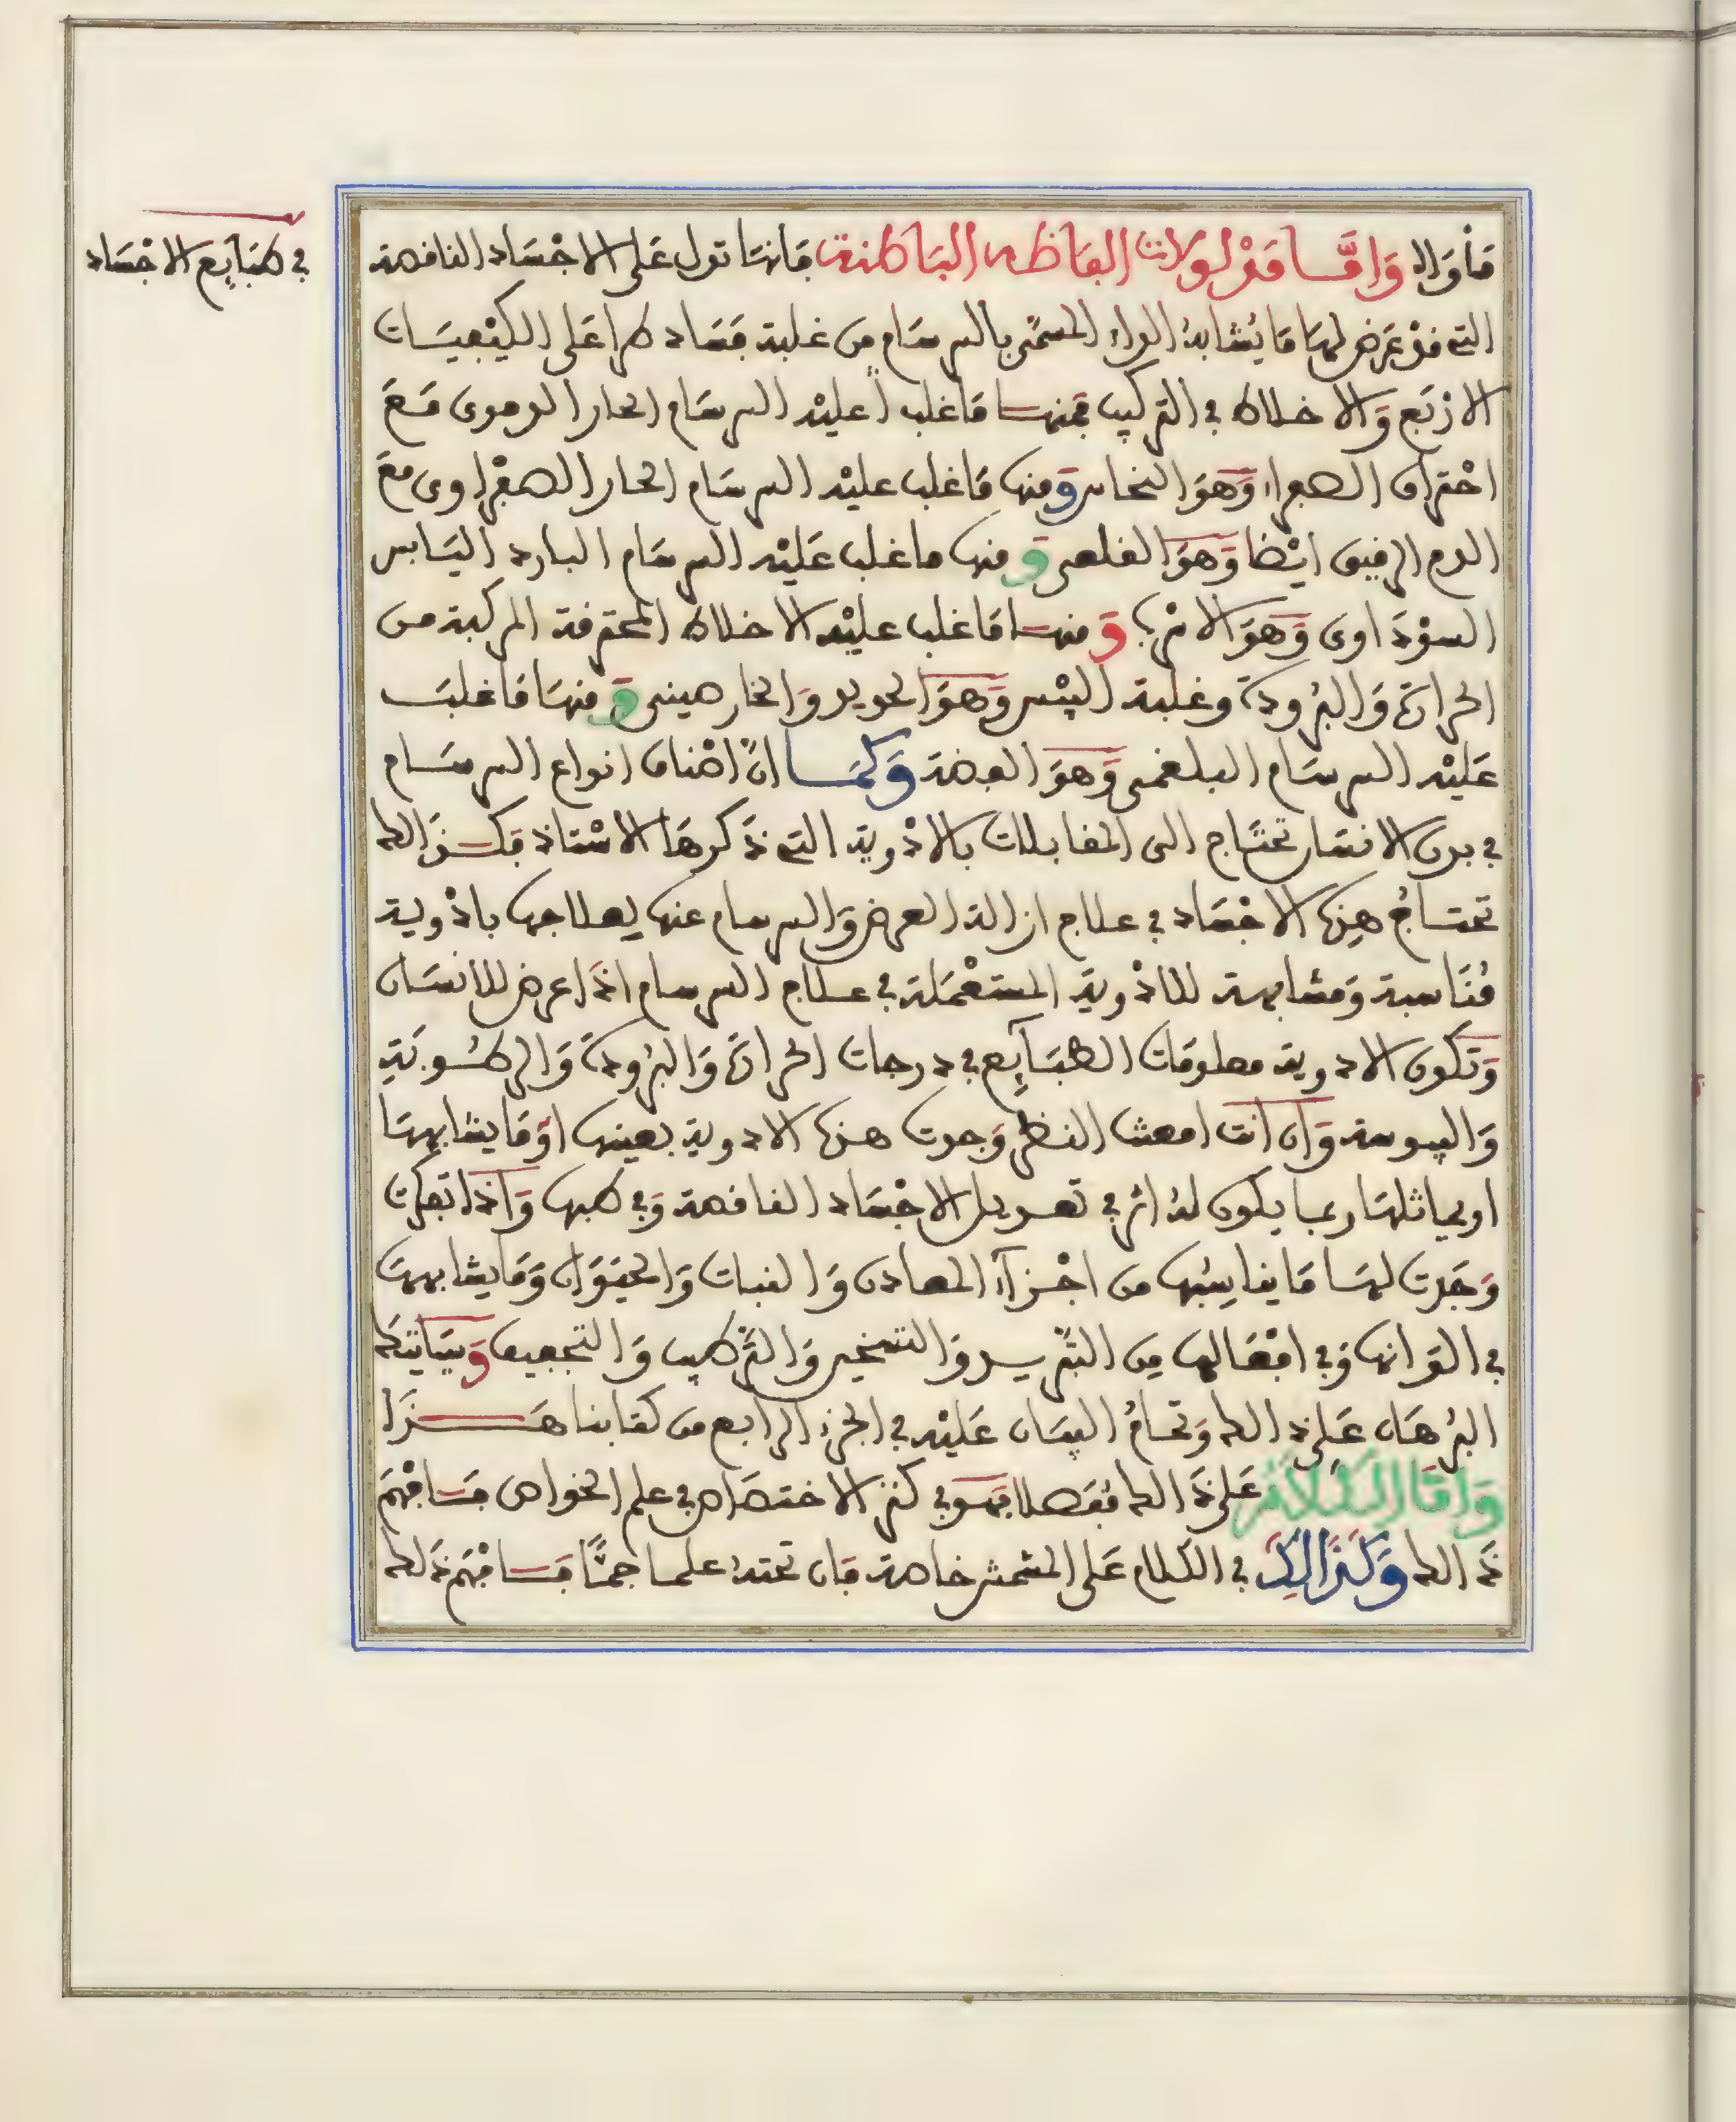 في طبَايِع الاجْسَاد
مَأوَاه وَامَّا مَدْلولات الفاظه البَاطنة فانهَا تدل عَلى الاجْسَاد الناقصة
التي قدْ عَرَض لهَا مَا يُشابهُ الداء المسمَّى بالسرسَام من غلبة فسَاد طرا عَلى الكيْفِيَات
الارْبَع وَالاخلاط في التركيب فمنها مَا غلب عليْه السرسَام الحار الدموى مَعَ
احْتراق الصفراء وَهوَ النحاس وَمنها مَا غلب عليْه السرسَام الحار الصفْراوى مع
الدم الرقيق ايْضا وَهوَ القلعى وَمنها ما غلب عَليْه السرسَام البارد اليَابس
السوْدَاوى وَهوَ الاسْرب وَمنها مَا غلب عليْه الاخلاط المحترقة المركبة من
الحرَارَة وَالبُرودَة وغلبة اليبْس وَهوَ الحديد وَالخارصينى وَمنهَا مَا غلبَ
عَليْه السرسَام البلغمى وَهوَ الفضة وَكمَا انَّ اصْناف انواع السرسَام
في بدن الانسَان تحتَاج الى المقابلات بالادْوية التي ذكرهَا الاسْتاذ فكذَالك
تحتاجُ هذِه الاجْسَاد في علاج ازالة العرض وَالسرسام عنها لعلاجها بادْوية
مُنَاسبة وَمشابهة للادْوية المستعْمَلة في علاج السرسام اذَا عرض للانسَان
وَتكون الادوية معلومَات الطبَايِع في درجات الحرَارَة وَالبُرودَة وَالرطُوبَةِ
وَاليبوسة وَان انت امعنت النظر وَجدت هذه الادوية بعينها اوْ مَا يشابههَا
او يماثلهَا ربما يكون لهُ اثر في تعديل الاجْسَاد الناقصة وَفي طبها وَاذا تفكرت
وَجَدت لهَا مَا يناسِبُها من اجْزآء المعادن وَالنبات وَالحيَوَان وَمَا يشابههَا
في الوَانها وَفي افْعَالها مِن التبْريد وَالتسْخين وَالتَّرْطيب وَالتجفيف وَسَيَاتيكَ
البُرهَان عَلى ذَالك وَتمامُ البيَان عَليْه في الجزء الرابع من كتابنا هَذَا
وَامَّا الكلام عَلى ذَالك مُفصلا فهوَ في كنز الاختصَاص في علم الخواص فافْهَم
ذَالك وَكَذَالِكَ في الكلام عَلى المشمش خاصة فان تحتهُ علما جمًّا فافْهَم ذَلك